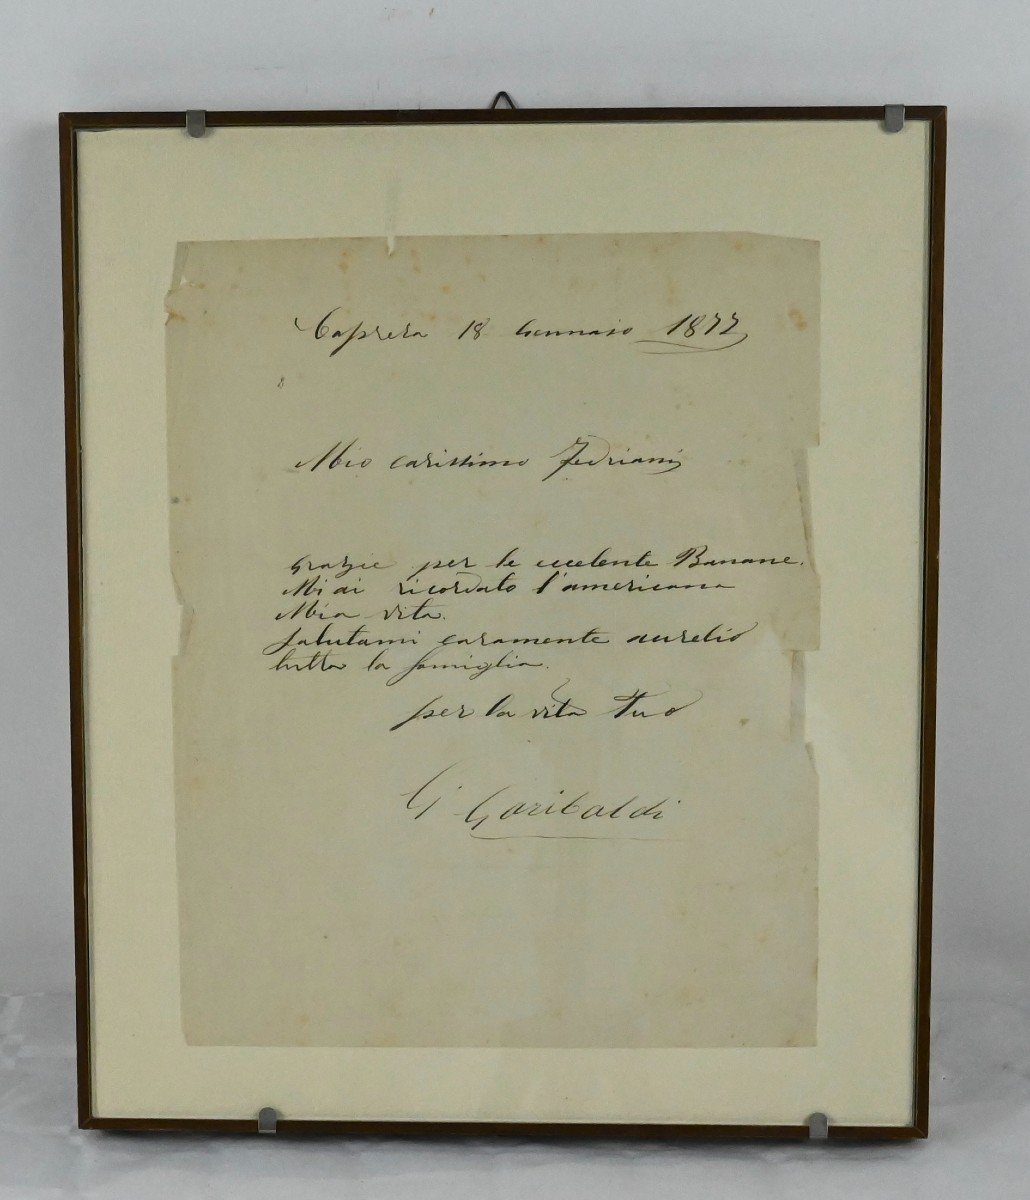 Caprera 18 Gennaio 1877
Mio carissimo Fedriani
Grazie per le eccelente Banane.
Mi ai ricordato l'americana
Mia vita.
Salutami caramente aurelio
tutta la famiglia.
per la vita Tuo
G Garibaldi